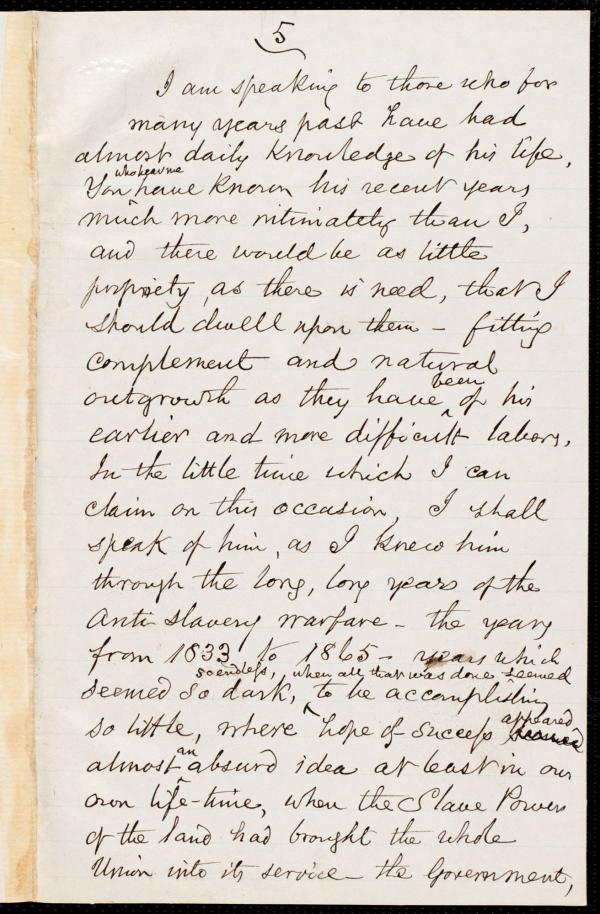 5
I am speaking to those who for
many years past have had
almost daily knowledge of his life,
who hear me
You have known his recent years
much more intimately than I,
and there would be as little
propriety, as there is need, that I
should dwell upon them – fitting
complement and natural
been
outgrowth as they have ^ of his
earlier and more difficult labors.
In the little time which I can
claim on this occasion, I shall
speak of him, as I knew him
through the long, long years of the
Anti-Slavery warfare – the years
from 1833 to 1865 – years which
so endless, when all that was done seemed
seemed so dark, ^ to be accomplishing
appeared
so little, where hope of success seemed
an
almost ^ absurd idea at least in our
own life-time, when the Slave Power
of the land had brought the whole
Union into its service – the Government,